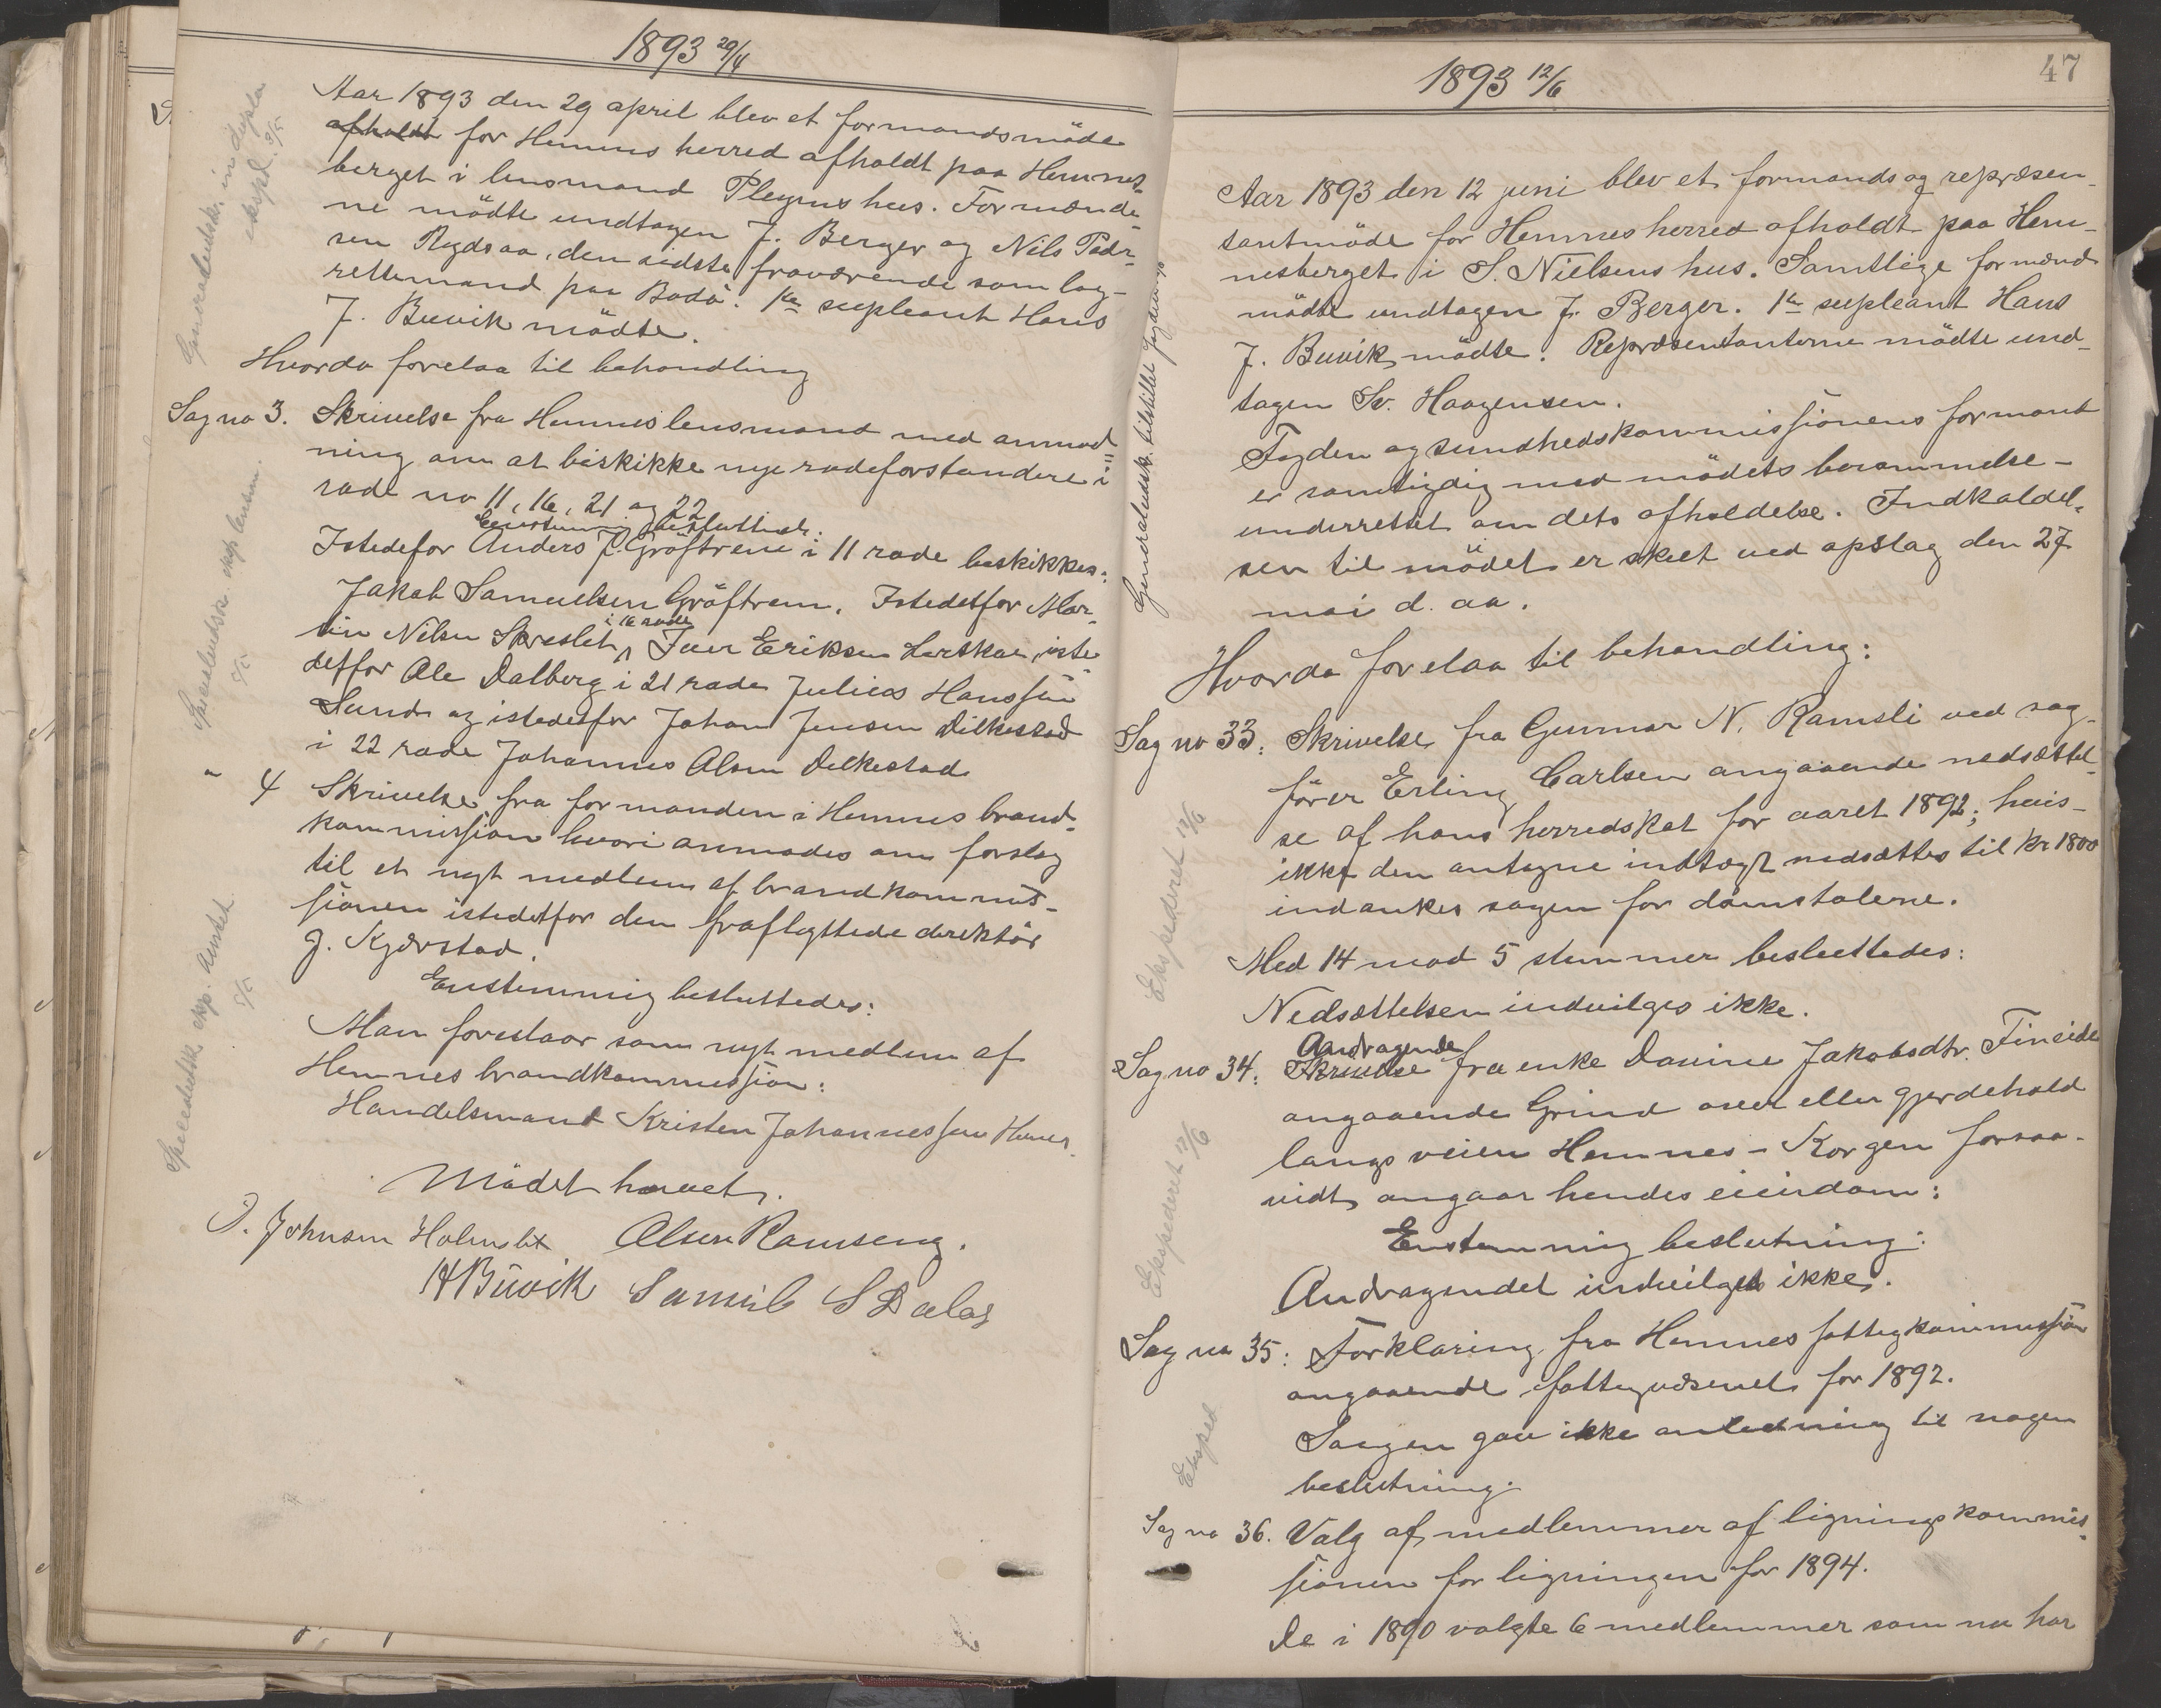 1893 29/4
Aar 1893 den 29 april blev et formandsmöde
afholdt for Hemnes herred afholdt paa Hemnes-
berget i lensmand Plegens hus. Formænde-
ne mödte undtagen J. Berger og Nils Peder-
sen Rydsaa, den sidste fraværende som lag-
rettemand paa Bodö. 1ste supleant Hans
J. Buvik mödte.
Hvorda forelaa til behandling
Sag no 3. Skrivelse fra Hemnes lensmand med anmod-
ning om at beskikke nye rodeforstandere i
rode no 11, 16, 21 og 22
Enstemmig besluttedes:
Istedefor Anders P. Gröftrem i 11 rode beskikkes:
Jakob Samuelsen Gröftrem. Istedetfor Mar-
tin Nilsen Skreslet i 16 rode Iver Eriksen Lerskar, iste-
detfor Ole Dalberg i 21 rode Julius Hanssen
Sund og istedetfor Johan Jensen Dilkestad
i 22 rode Johannes Olsen Dilkestad
" 4 Skrivelse fra formanden i Hemnes brand-
kommission hvori anmodes om forslag
til et nyt medlem af brandkommis-
sionen istedetfor den fraflyttede direktör
J. Kjærstad.
Enstemmig besluttedes:
Man foreslaar som nyt medlem af
Hemnes brandkommission:
Handelsmand Kristen Johannessen Hemnes.
Mödet hævet.
J. Johnsen Holmslet Olsen Ramseng.
H Buvik Samuel S Dalos
Generaludsk. indsplen
ekspd. 3/5
Specieludskr. eksp. lensm.
5/5
Specieludsk. eksp. Amtet
5/5
47
1893 12/6
Aar 1893 den 12 juni blev et formands og repræsen-
tantmöde for Hemnes herred afholdt paa Hem-
nesberget i S. Nielsens hus. Samtlige formænd
mödte undtagen J. Berger. 1ste supleant Hans
J. Buvik mödte. Repræsentanterne mödte und-
tagen Sv. Haagensen.
Fogden og sundhedskommissionens formand
er samtidig med mödets berammelse
underrettet om dets afholdelse. Indkaldel-
sen til mödet er skeet ved opslag den 27
mai d. aa.
Hvorda forelaa til behandling:
Sag no 33: Skrivelse fra Gunnar N. Ramsli ved sag-
förer Erling Carlsen angaaende nedsættel-
se af hans herredskat for aaret 1892; hvis
ikke den antagne indtægt nedsættes til kr 1800
indankes sagen for domstolerne.
Med 14 mod 5 stemmer besluttedes:
Nedsættelsen indvilges ikke.
Andragende
Sag no 34: Skrivelse fra enke Davine Jakobsdtr. Fineide
angaaende Grind over eller gjerdehold
langs veien Hemnes - Korgen forsaa-
vidt angaar hendes eiendom:
Enstemmig beslutning:
Andragendet indvilges ikke.
Sag no 35: Forklaring fra Hemnes fattigkommission
angaaende fattigvæsenet for 1892.
Sagen gav ikke anledning til nogen
beslutning.
Sag no 36. Valg af medlemmer af ligningskommis-
sionen for ligningen for 1894.
De i 1890 valgte 6 medlemmer som nu har
Generaludsk. tilstillet fogden
Ekspederet 17/6
Ekspederet 17/6
Eksped